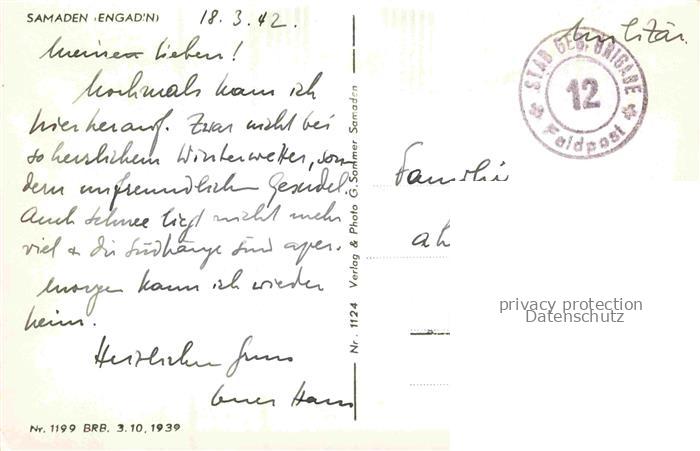 SAMADEN (ENGAD'N)
18.3.42.
Meine Lieben!
Nochmals kam ich
hierherauf. Zwar nicht bei
so herrlichem Winterwetter, son
dern unfreundlichem Gesudel.
Auch Schnee liegt nicht mehr
viel & die Südhänge sind aper.
Morgen kann ich wieder
heim.
Herzlichen Gruss
Euer Hans
Nr. 1199 BRB. 3.10.1939
Nr. 1124 Verlag & Photo G. Sommer Samaden
Militär.
STAB GEB. BRIGADE
12
Feldpost
Familie
privacy protection
Datenschutz